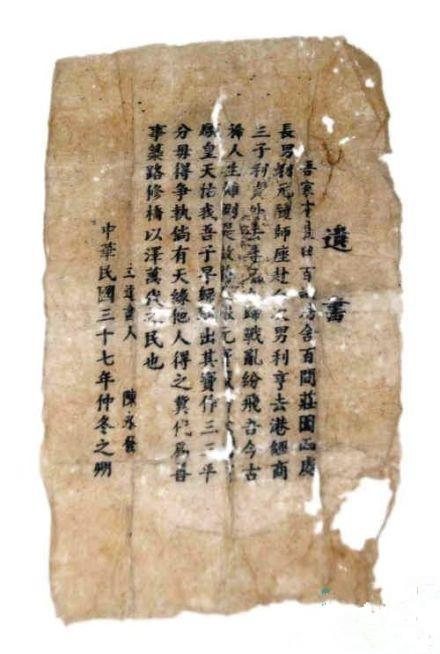 遺書
吾家百舍百間莊園兩處
長男利元隨師座赴次男利亨去港經商
三子利貞外去歸戰亂紛飛吾今古
稀人生難測是故銀元
願皇天佑我吾子早歸取出其寶作三一平
分毋得爭執倘有天緣他人得之冀代為善
事築路修橋以澤萬代之民也
立遺書人 陳永發
中華民國三十七年仲冬之朔